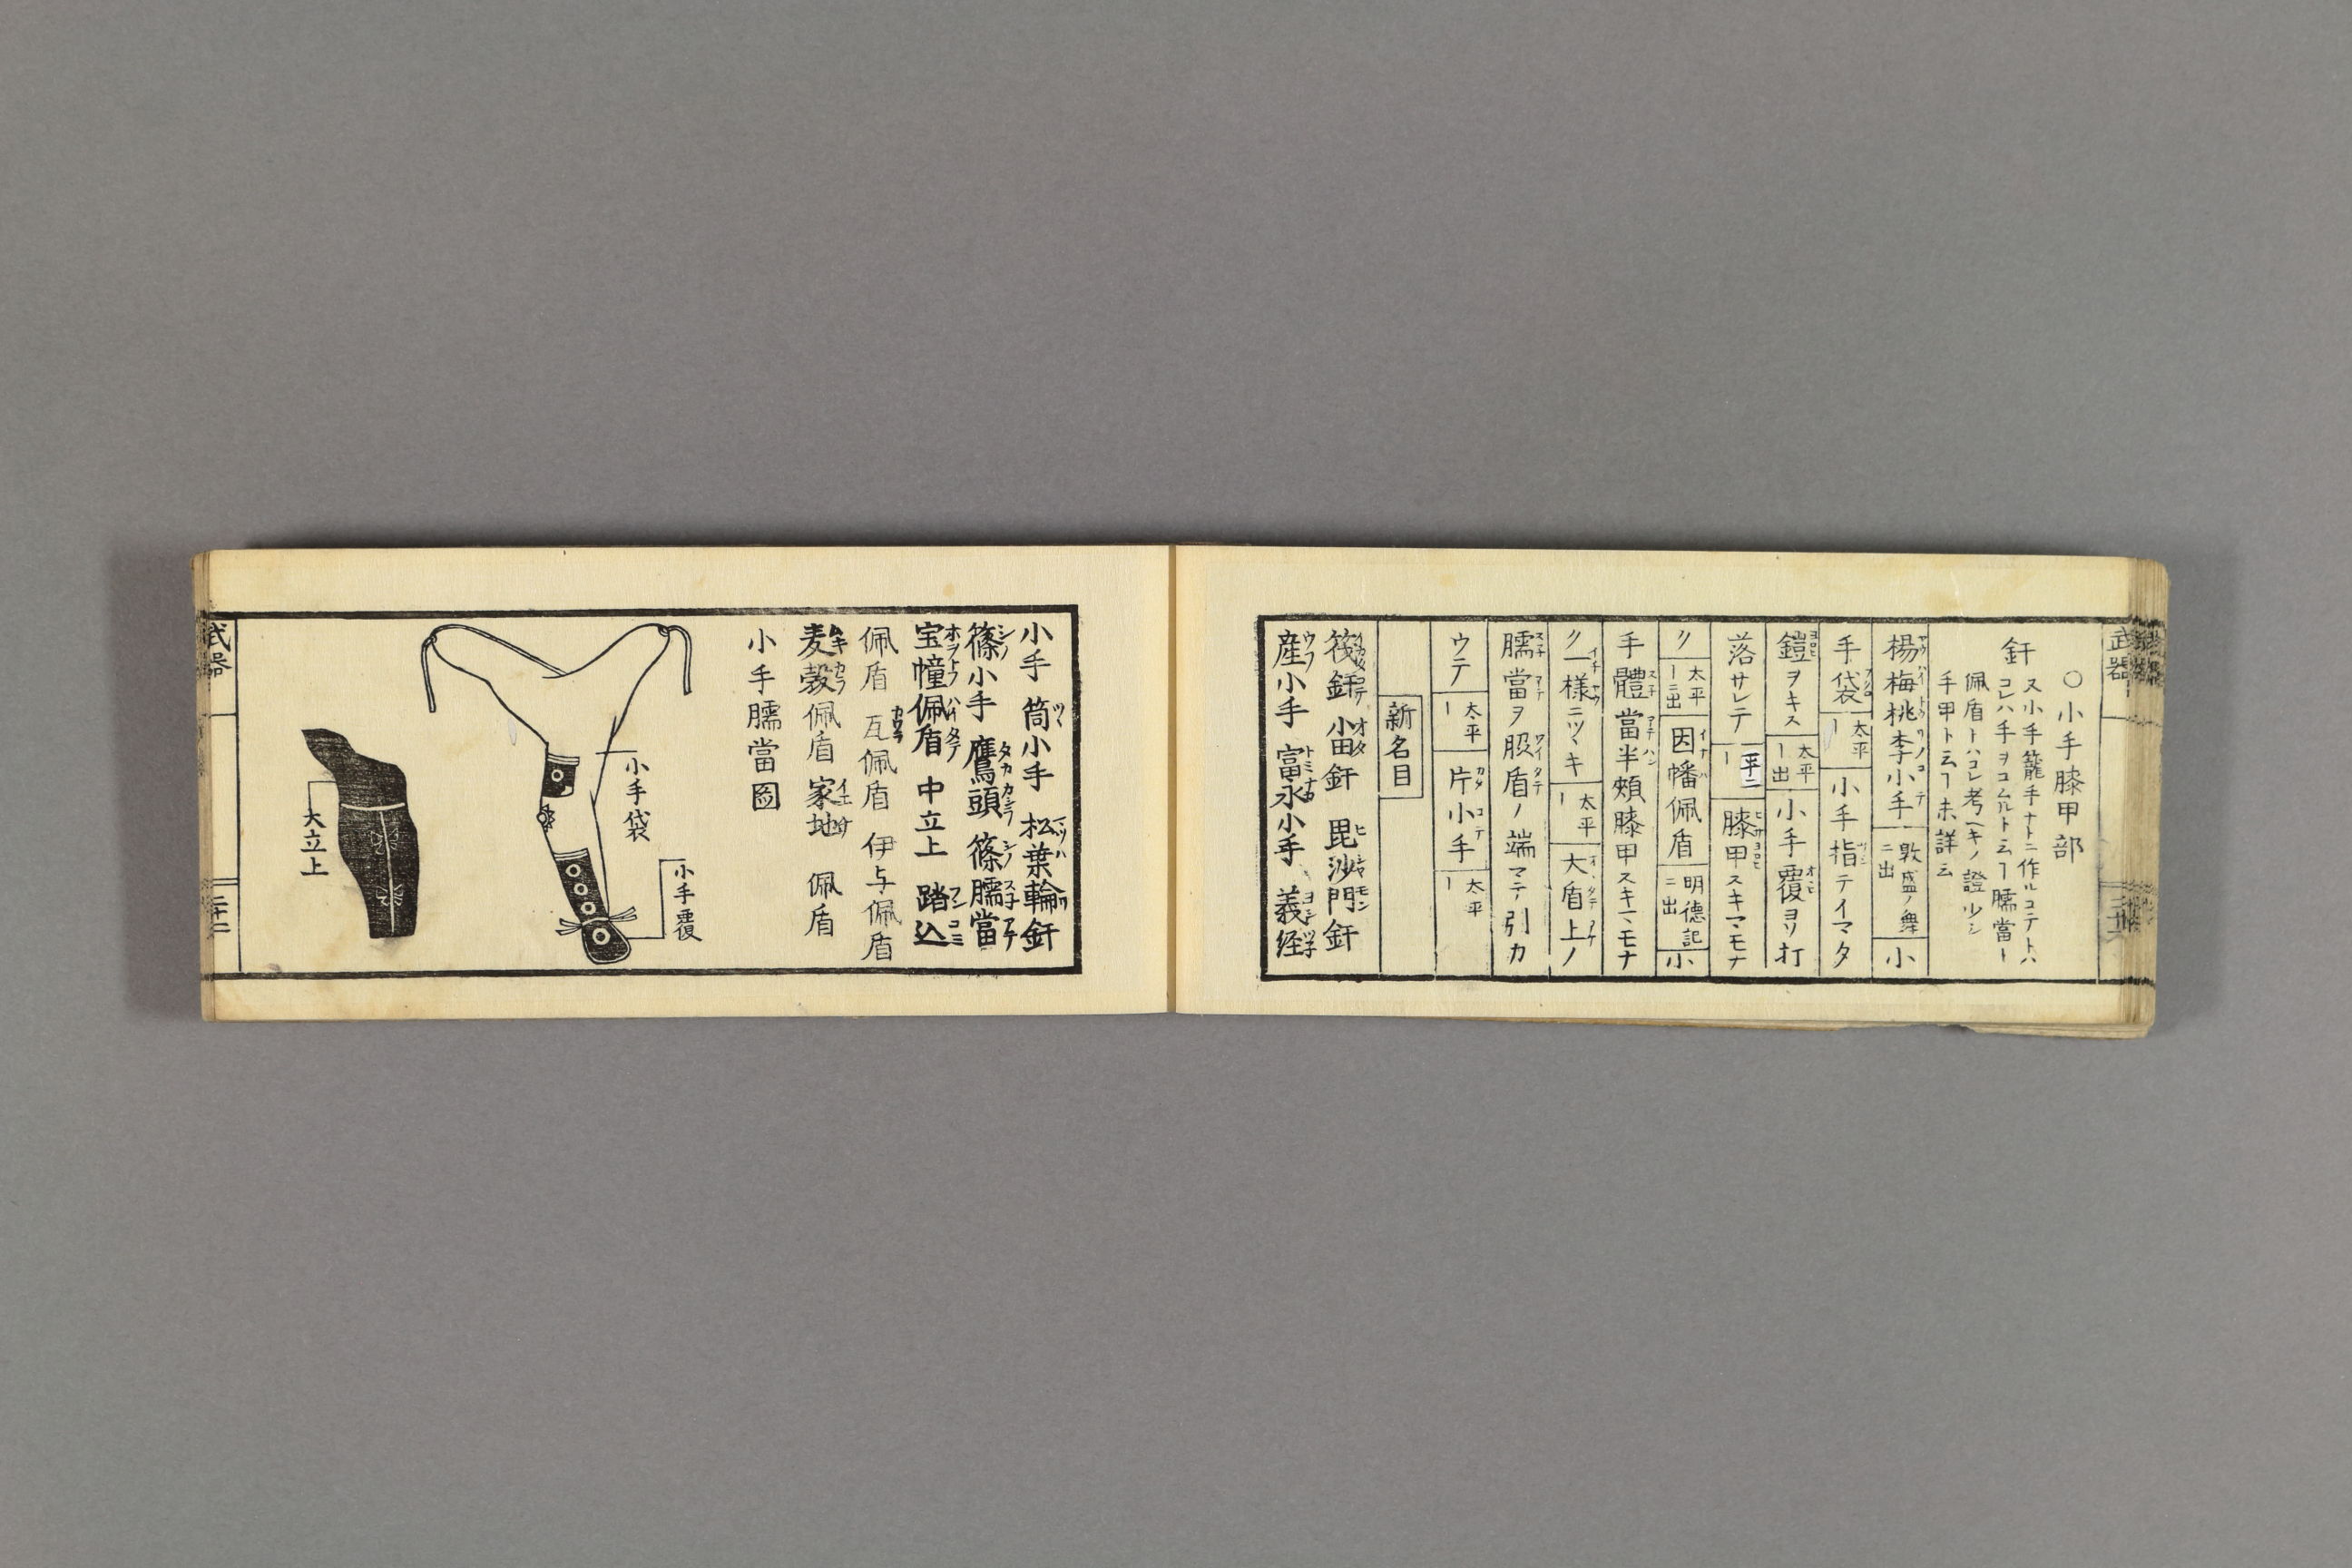 ○小手膝甲部
釬
又小手籠手ナトニ作ルコテトハ
コレハ手ヲコムルト云フ臑當ー
佩盾トハコレ考ヘキノ證少シ
手甲ト云フ未詳云
楊梅桃李小手 敦盛ノ舞ニ出 小
手袋 太平ー 小手指テイマタ
鎧ヲキス 太平ー出 小手覆ヲソ打
落サレテ 平ニー 膝甲スキマモナ
ク 太平ーニ出 因幡佩盾 明德記ニ出 小
手體當半頰膝甲スキマモナ
ク一様ニツヽキ 太平ー 大盾上ノ
臑當ヲ股盾ノ端マテ引カ
ウテ 太平ー 片小手 太平ー
新名目
筏釬 小田釬 毘沙門釬
産小手 富永小手 義経
小手 筒小手 松葉輪釬
篠小手 鷹頭 篠臑當
宝幢佩盾 中立上 踏込
佩盾 瓦佩盾 伊与佩盾
麦穀佩盾 家地 佩盾
小手臑當圖
小手袋
小手覆
大立上
武器
二十二